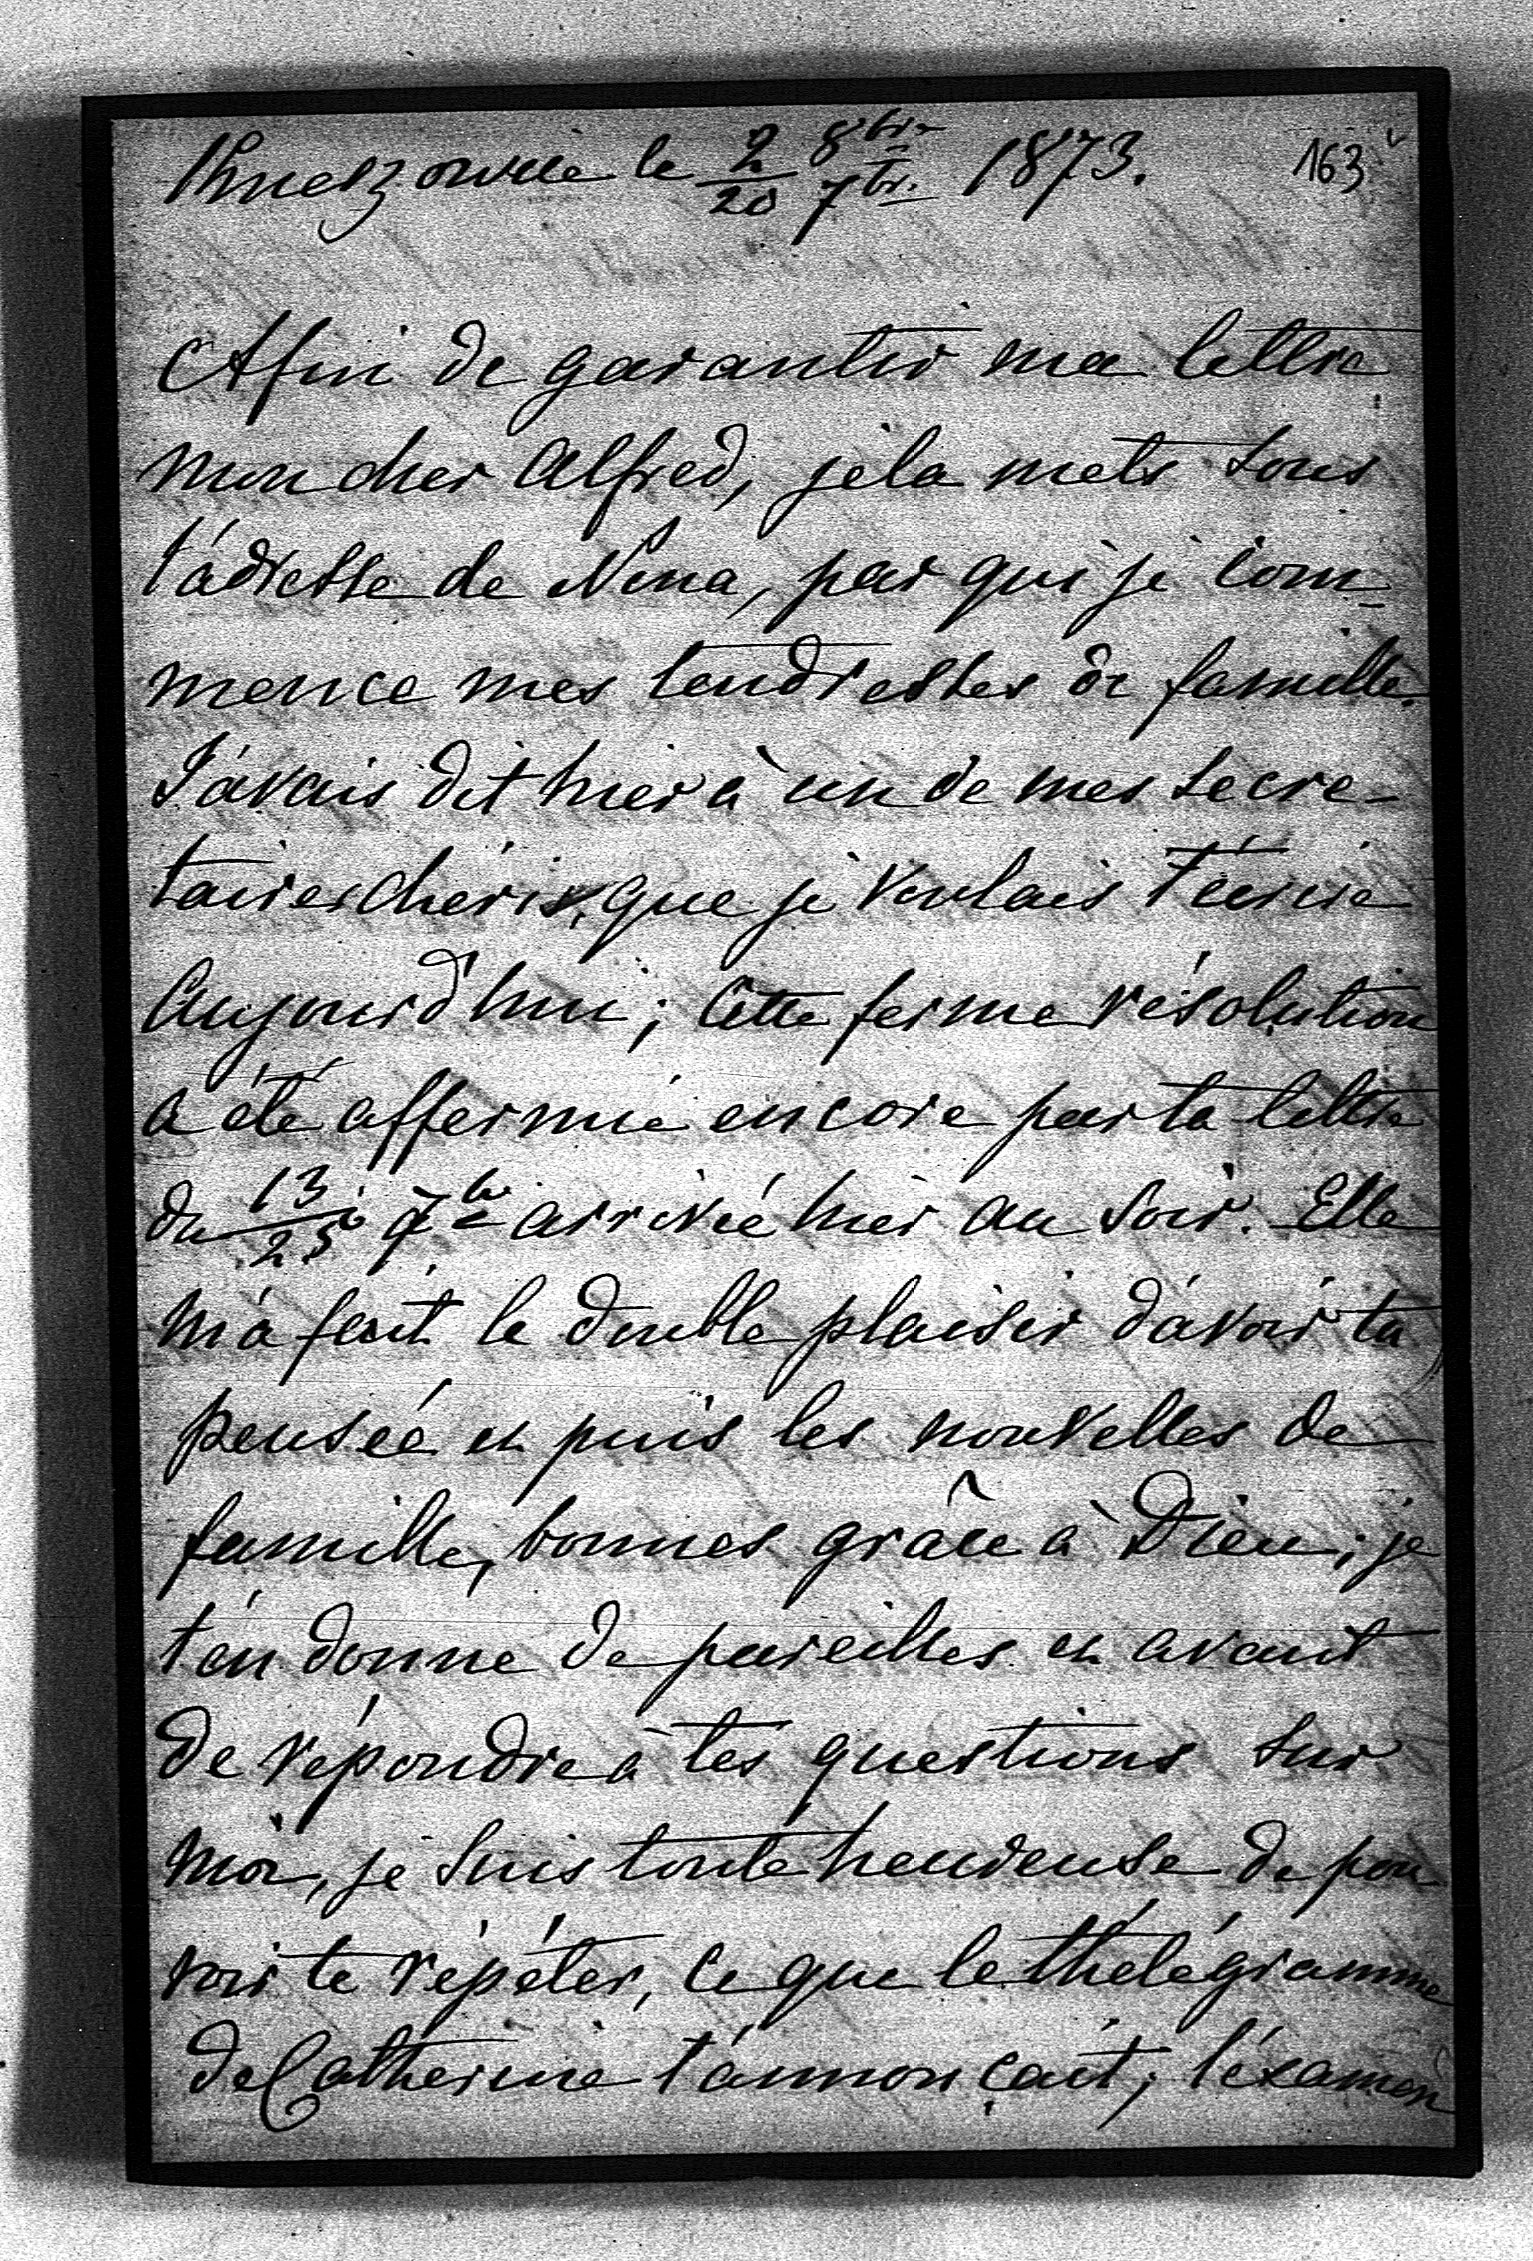 Kruszowie le 2/20 8bre/7br. 1873. 163
Afin de garantir ma lettre
mon cher Alfred, je la mets sous
l'adresse de Nina, par qui je com-
mence mes tendresses de famille.
J'avais dit hier à un de mes secre-
taires chéris, que je voulais t'écrire
Aujourd'hui; cette ferme résolution
a été affermie encore par ta lettre
du 13/25 7br arrivée hier au soir. Elle
m'a fait le double plaisir d'avoir ta
pensée et puis les nouvelles de
famille, bonnes grâce à Dieu; je
t'en donne de pareilles et avant
de répondre à tes questions sur
moi, je suis toute heureuse de pou
voir te répéter, ce que le thélégramme
de Catherine t'annonçait; l'éxamen